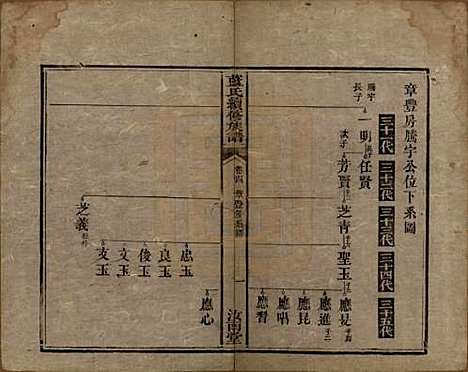 章豐房騰宇公位下系圖
三十一代 三十二代 三十三代 三十四代 三十五代
騰宇
長子
一明
任賢
次子
芳賢
芝青
聖玉
應晃
應進
應昆
應唱
應習
藍氏續修族譜
卷四 章豐房系圖
一
汝南堂
應心
忠玉
良玉
俊玉
文玉
芝義